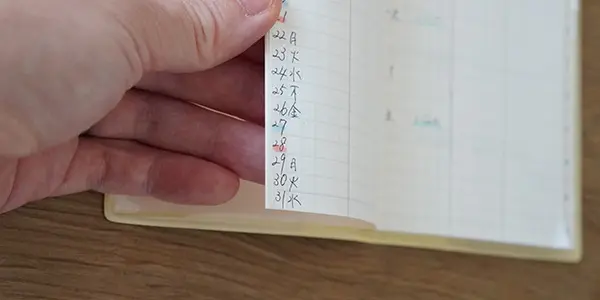 22月
23火
24水
25木
26金
27
28
29月
30火
31水